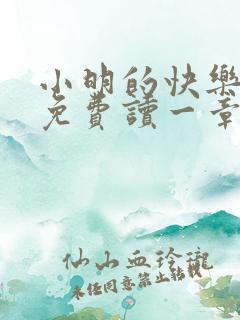 小明的快樂
免費讀一章
仙山血玲瓏
未任同意禁止転載